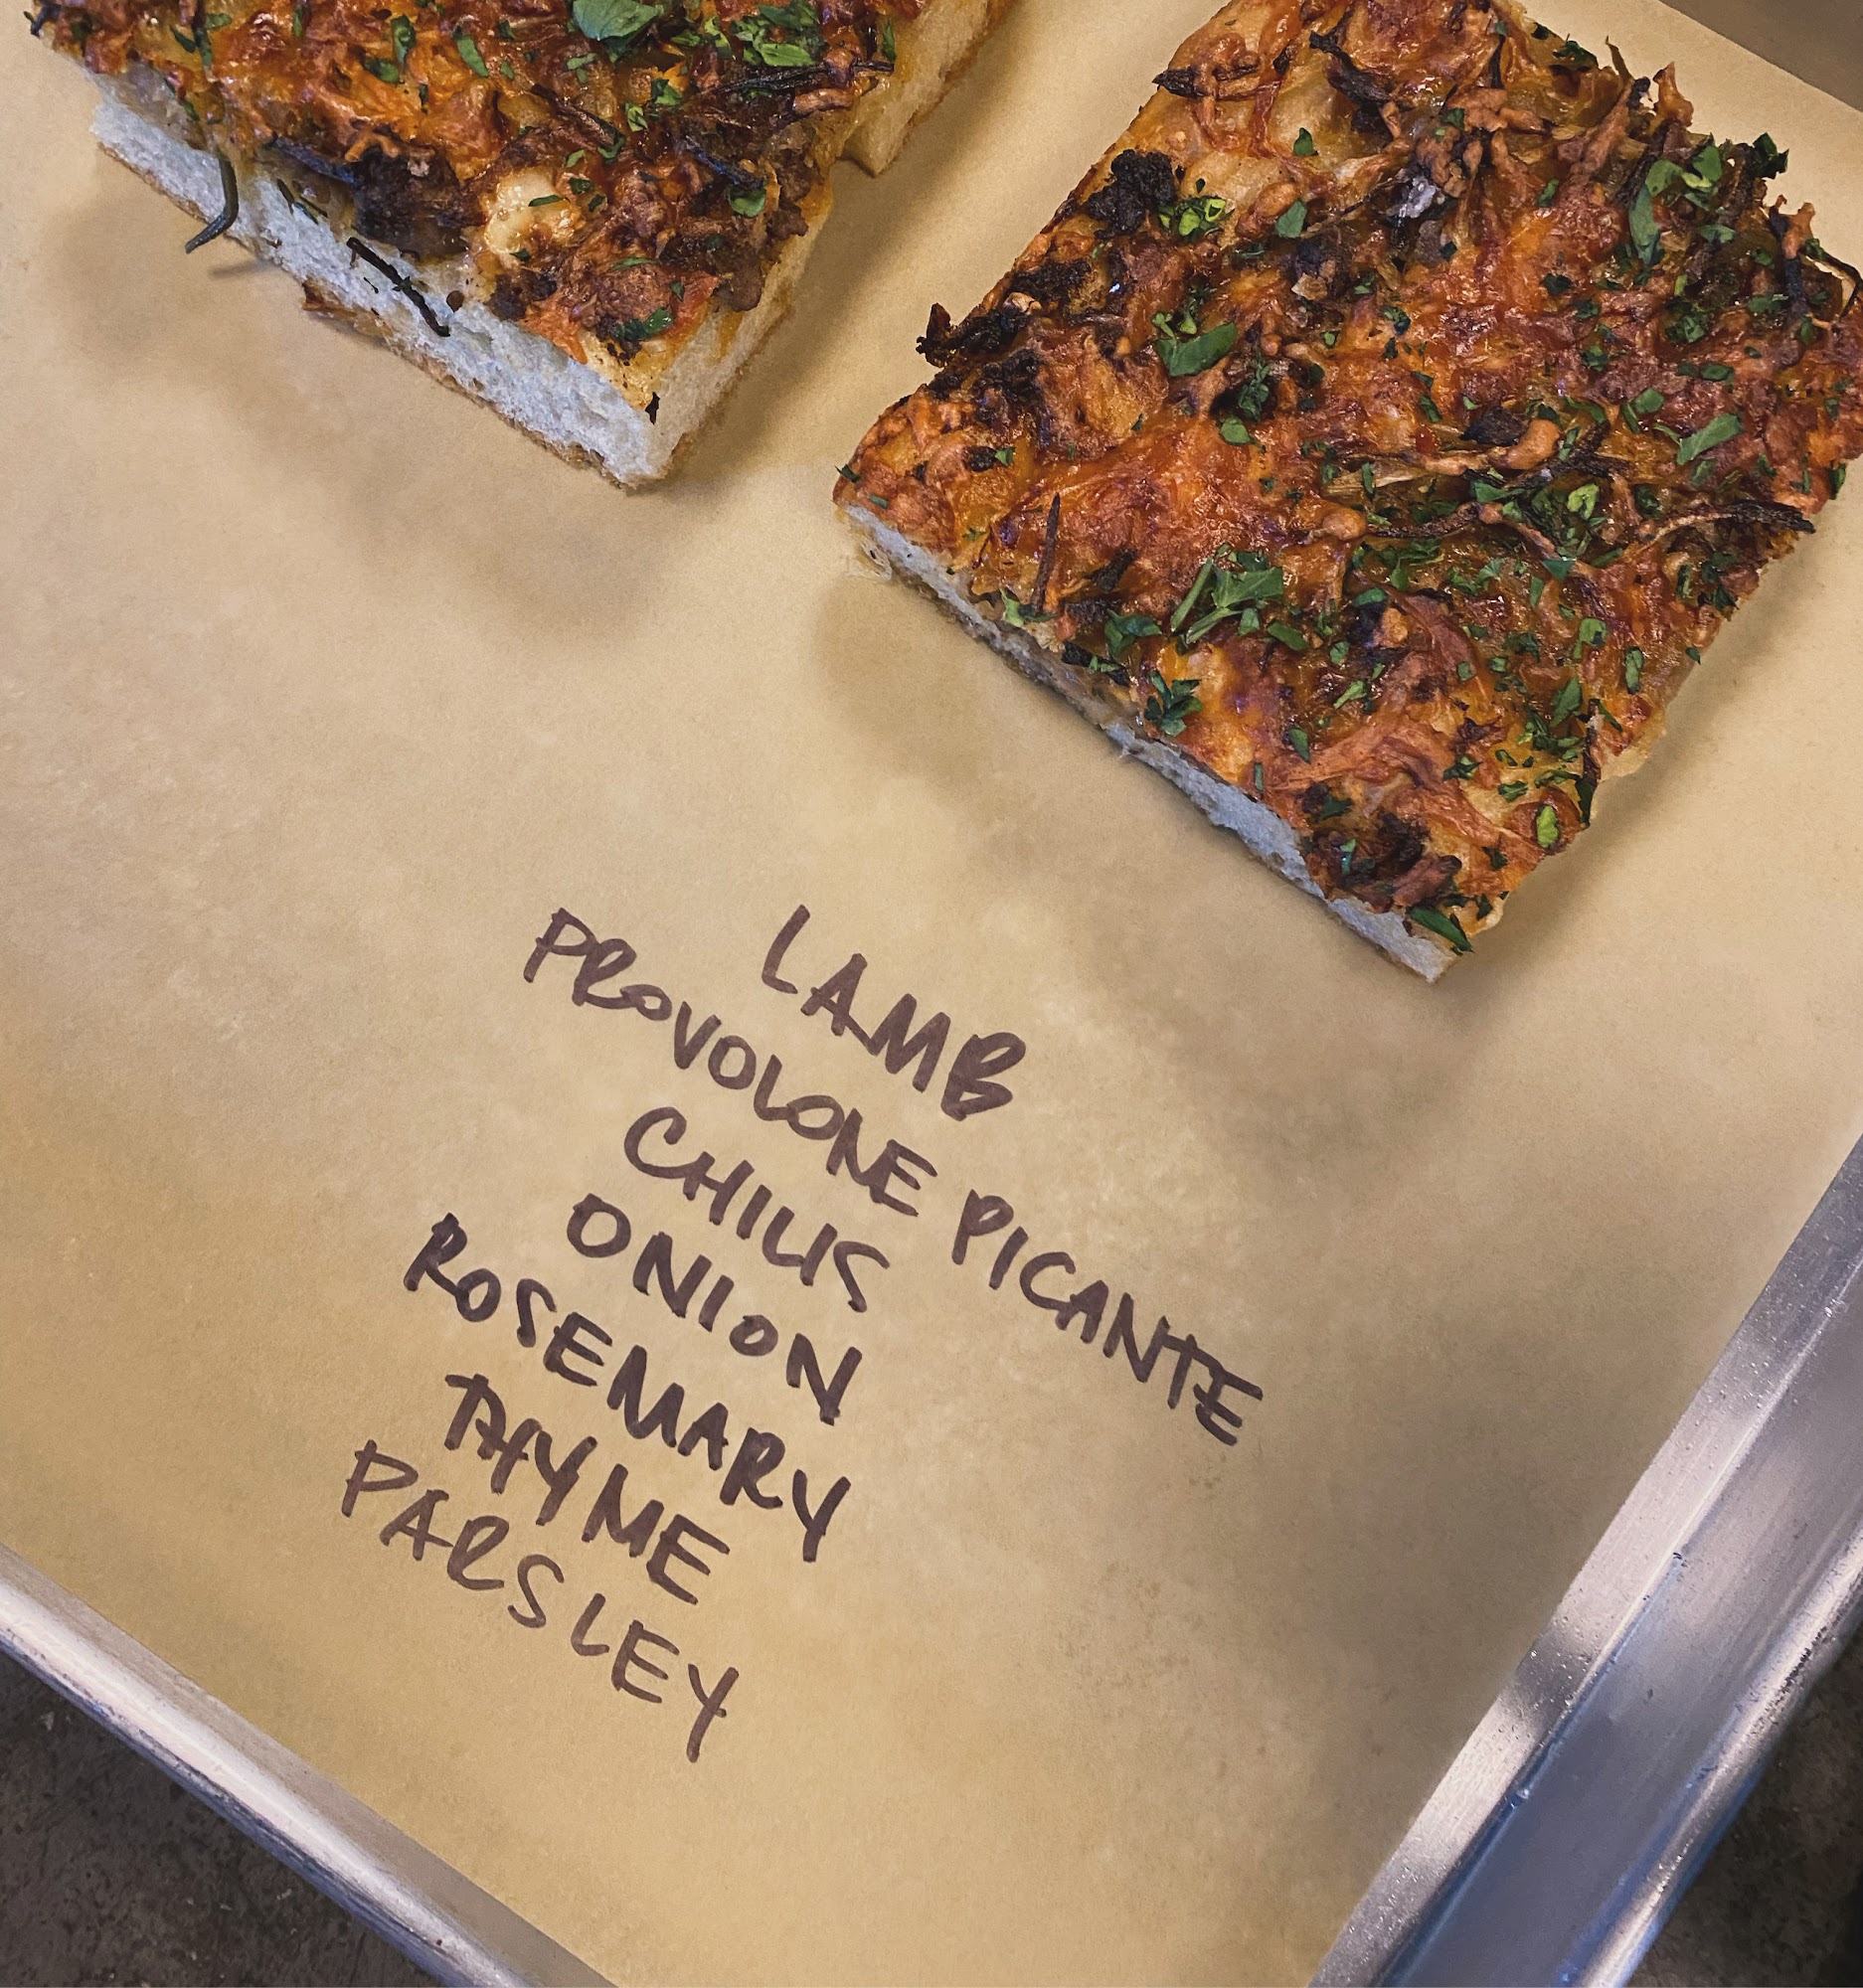 LAMB
PROVOLONE PICANTE
CHILIS
ONION
ROSEMARY
THYME
PARSLEY